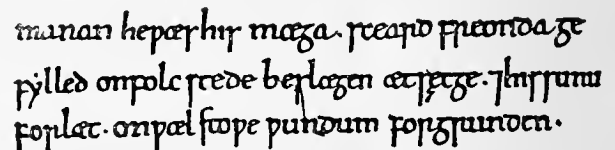 manan heƿæs his mæga. sceard freonda ge
fylled onfolc stede beslægen ætsęcge. ⁊hissunu
forlæt. onƿæl stoƿe ƿundum forgrunden.